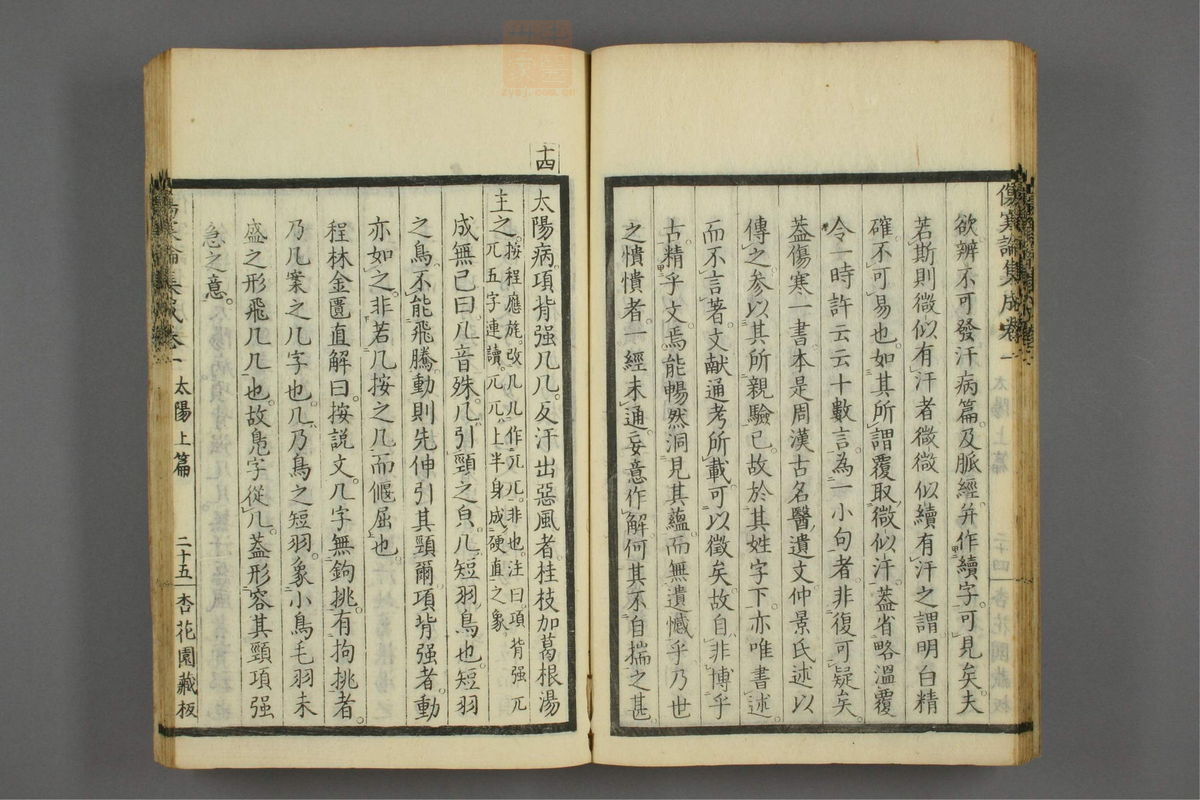 傷寒論集成卷一
欲辨不可發汗病篇及脈經并作續字可見矣夫
若斯則微似有汗者微微似續有汗之謂明白精
確不可易也如其所謂覆取微似汗蓋省略溫覆
令一時許云云十數言為一小句者非復可疑矣
蓋傷寒一書本是周漢古名醫遺文仲景氏述以
傳之參以其所親驗已故於其姓字下亦唯書述
而不言著文獻通考所載可以徵矣故自非博乎
古精乎文焉能暢然洞見其蘊而無遺憾乎乃世
之憒憒者一經未通妄意作解何其不自揣之甚
十四
太陽病項背强几几反汗出惡風者桂枝加葛根湯
主之按程應旄改几几作兀兀非也注曰項背强兀
兀五字連讀兀兀上半身成硬直之象
成無己曰几音殊几引頸之皃几短羽鳥也短羽
之鳥不能飛騰動則先伸引其頸爾項背强者動
亦如之非若几按之几而偃屈也
程林金匱直解曰按說文几字無鉤挑有拘挑者
乃几案之几字也几乃鳥之短羽象小鳥毛羽未
盛之形飛几几也故鳧字從几蓋形容其頸項强
急之意
太陽上篇 二十五 杏花園藏板